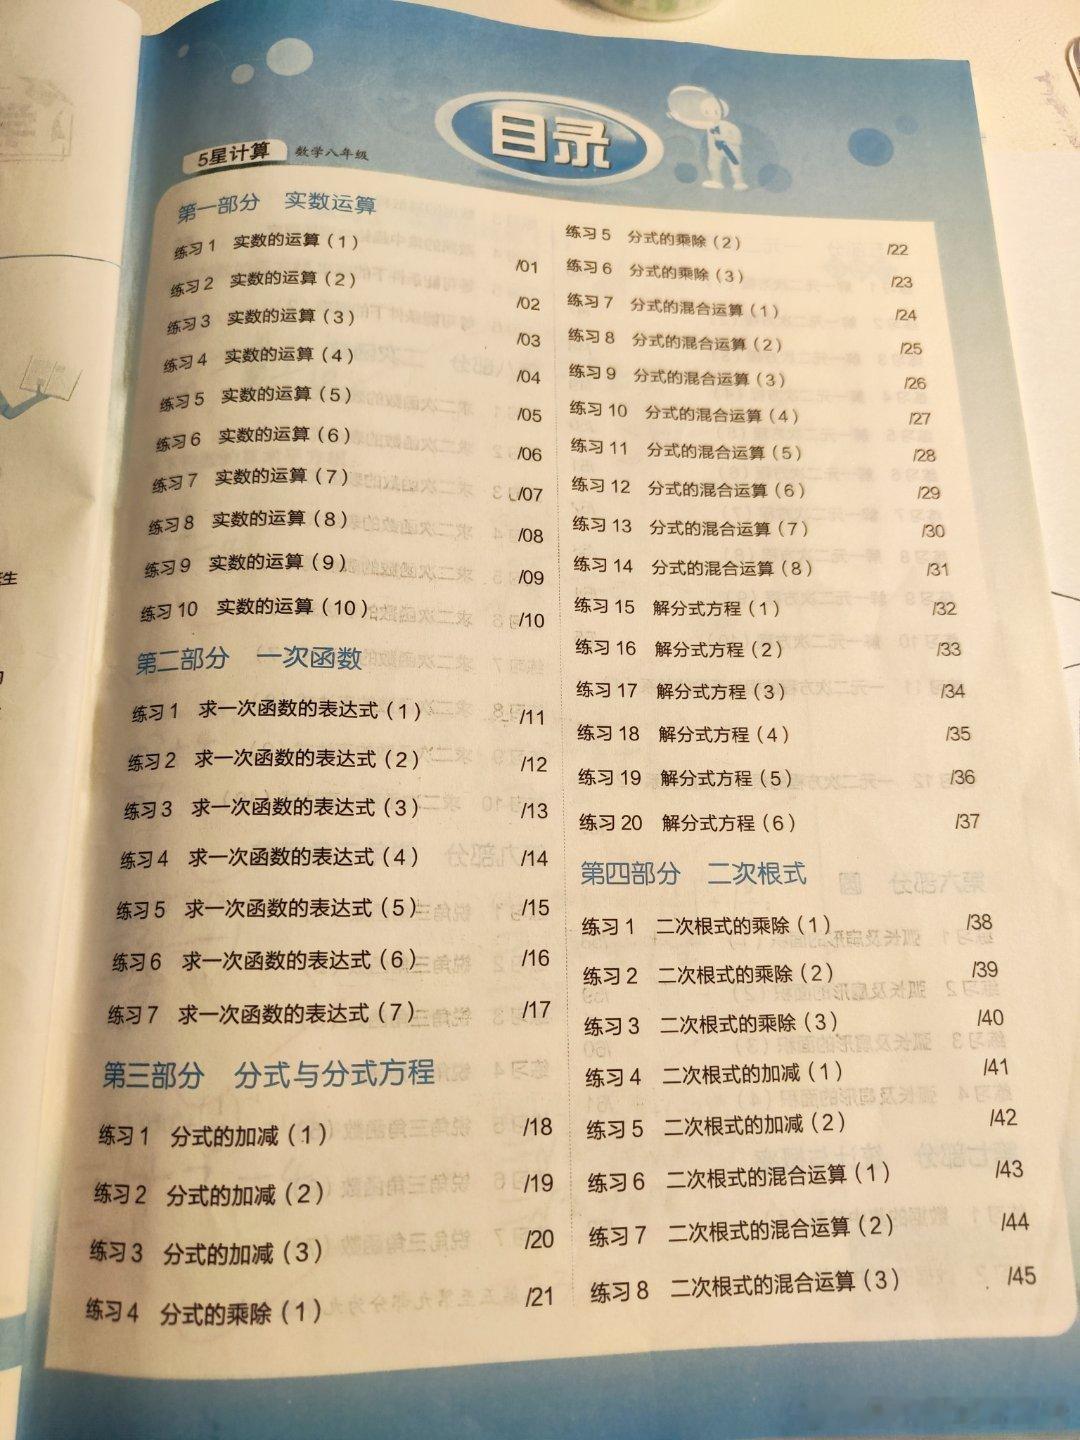 目录
5星计算 数学八年级
第一部分 实数运算
练习1 实数的运算（1） /01
练习2 实数的运算（2） /02
练习3 实数的运算（3） /03
练习4 实数的运算（4） /04
练习5 实数的运算（5） /05
练习6 实数的运算（6） /06
练习7 实数的运算（7） /07
练习8 实数的运算（8） /08
练习9 实数的运算（9） /09
练习10 实数的运算（10） /10
第二部分 一次函数
练习1 求一次函数的表达式（1） /11
练习2 求一次函数的表达式（2） /12
练习3 求一次函数的表达式（3） /13
练习4 求一次函数的表达式（4） /14
练习5 求一次函数的表达式（5） /15
练习6 求一次函数的表达式（6） /16
练习7 求一次函数的表达式（7） /17
第三部分 分式与分式方程
练习1 分式的加减（1） /18
练习2 分式的加减（2） /19
练习3 分式的加减（3） /20
练习4 分式的乘除（1） /21
练习5 分式的乘除（2） /22
练习6 分式的乘除（3） /23
练习7 分式的混合运算（1） /24
练习8 分式的混合运算（2） /25
练习9 分式的混合运算（3） /26
练习10 分式的混合运算（4） /27
练习11 分式的混合运算（5） /28
练习12 分式的混合运算（6） /29
练习13 分式的混合运算（7） /30
练习14 分式的混合运算（8） /31
练习15 解分式方程（1） /32
练习16 解分式方程（2） /33
练习17 解分式方程（3） /34
练习18 解分式方程（4） /35
练习19 解分式方程（5） /36
练习20 解分式方程（6） /37
第四部分 二次根式
练习1 二次根式的乘除（1） /38
练习2 二次根式的乘除（2） /39
练习3 二次根式的乘除（3） /40
练习4 二次根式的加减（1） /41
练习5 二次根式的加减（2） /42
练习6 二次根式的混合运算（1） /43
练习7 二次根式的混合运算（2） /44
练习8 二次根式的混合运算（3） /45